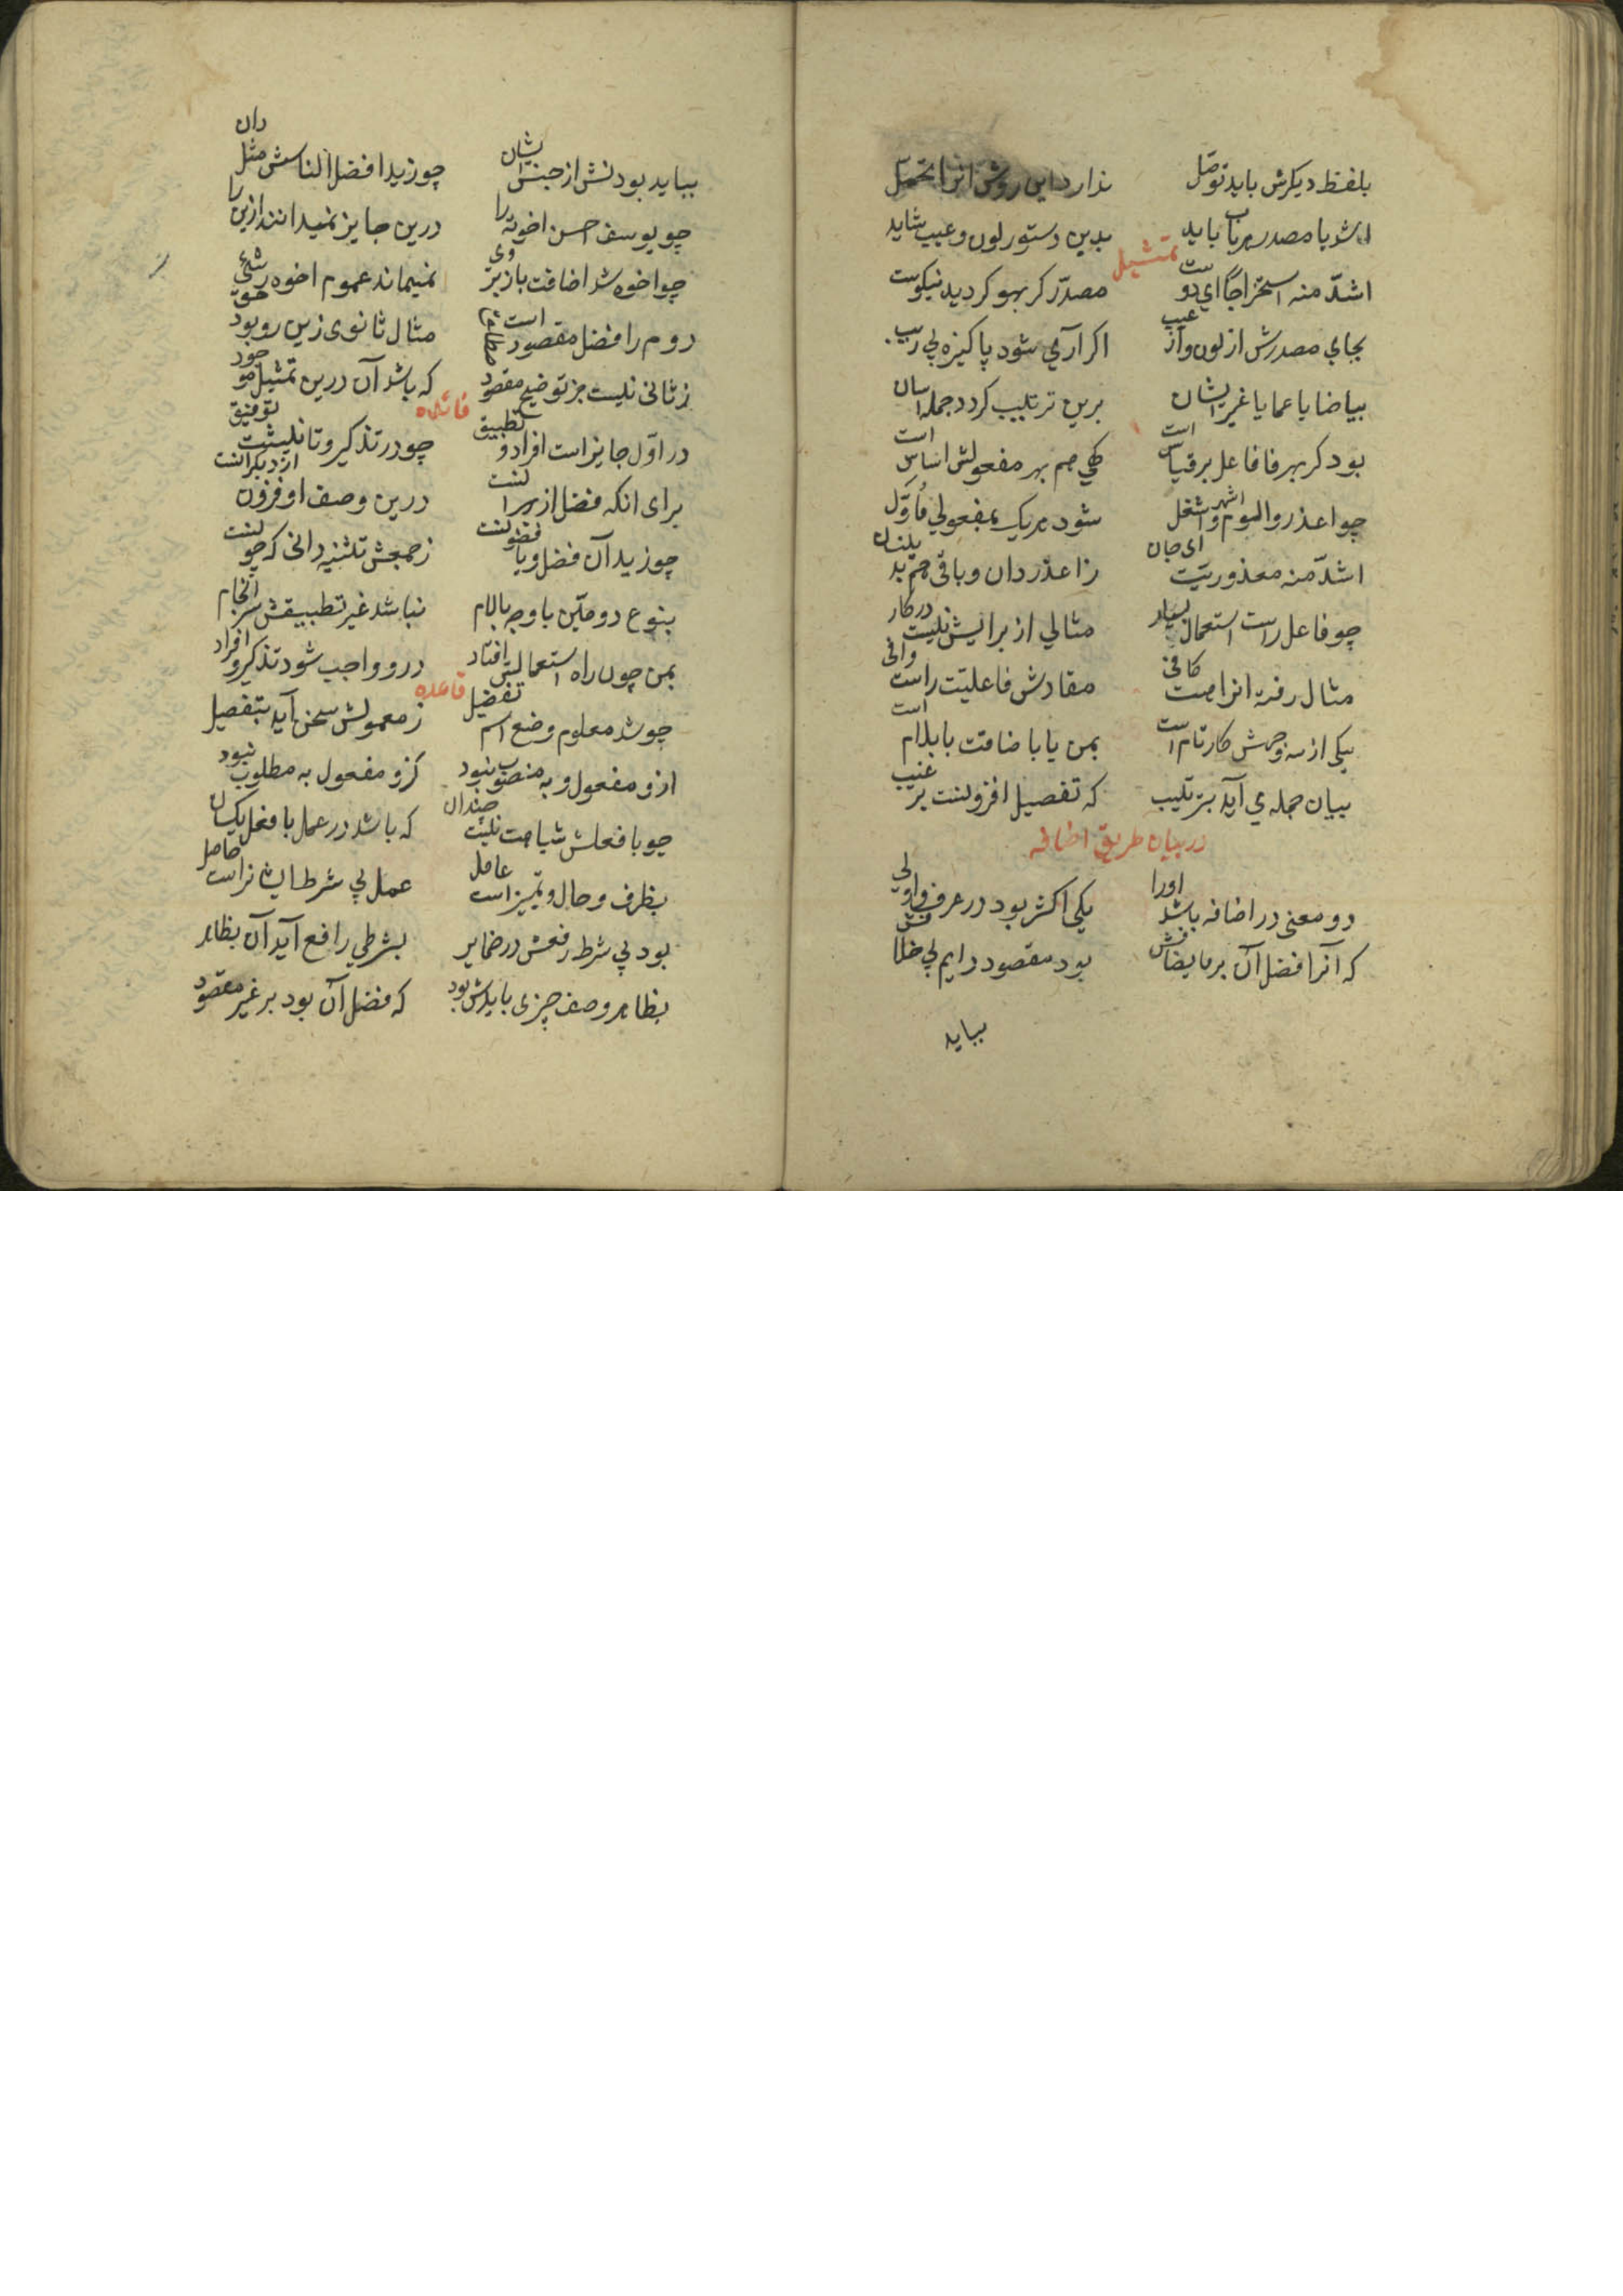 بلفظ دیکرش باید توصّل ندارد این روش انرا تحمّل
اشد یا مصدر هر باب باید بدین دستور لون و عیب شاید
تمثیل
اشدّ منه استخراجا ای دوست مصدّر کر بهو کردید نیکوست
بجای مصدرش از لون و از عیب اکر آری شود پاکیزه بی ریب
بیاضا یا عما یا غیر ایشان برین ترتیب کردد جمله اسان
بود کر بهر فا فاعل بر قیاس است کهی هم بهر مفعولش اساس است
چو اعذر و الوم و اشهر و اشغل شود هر یک بمفعولی مأوّل
اشدّ منه معذوریّت ای جان ز اعذر دان و باقی هم بدینسان
چو فاعل راست استعمال بسیار مثالی از برایش نیست در کار
مثال رفته انراهست کافی مفادش فاعلیّت راست وافی
یکی از سه وجهش کار تام است بمن یا با ضافت یا بلام است
بیان جمله ی آید بترتیب که تفصیل افزونست بر غیب
در بیان طریق اضافه
دو معنی در اضافه باشد اورا یکی اکثر بود در عرف
که آنرا فضل آن بر ما یضافش بود مقصود دایم بی خلافش
بباید
بباید بودنش از جنس ایشان چو زید افضل الناسش مثل دان
چو یوسف احسن اخوته را درین جایز نمیدانند ازین را
چو اخوه شد اضافت باز بر وی نمیماند عموم اخوه
دوم را فضل مقصود است مثال ثانوی زین رو بود حق
ز ثانی نیست جز توضیح مقصود که باشد آن درین تمثیل موجود
فائده
در اوّل جایز است افراد و تطبیق چو در تذکیر و تانیثست توفیق
برای انکه فضل از بهر درین وصف او فزون از دیکرانست
چو زید آن فضل و یا ز جمعش تثنیه دانی که چونست
بنوع دومین با وجه با لام نباشد غیر تطبیقش سر انجام
بمن چون راه استعمالش افتاد درو واجب شود تذکیر و افراد
قاعده
چو شد معلوم وضع اسم تفضیل ز معمولش سخن آید بتفصیل
ازو مفعول و به منصوب نبود کزو مفعول به مطلوب نبود
چو با فعلش شباهت نیست چندان که باشد در عمل با فعل یکسان
بظرف و حال و تمییز است عامل عمل بی شرط ایشانراست حاصل
بود بی شرط رفعش در ضمایر بشرطی رافع آید آن بظاهر
بظاهر وصف چیزی بایدش بود که فضل آن بود بر غیر مقصود